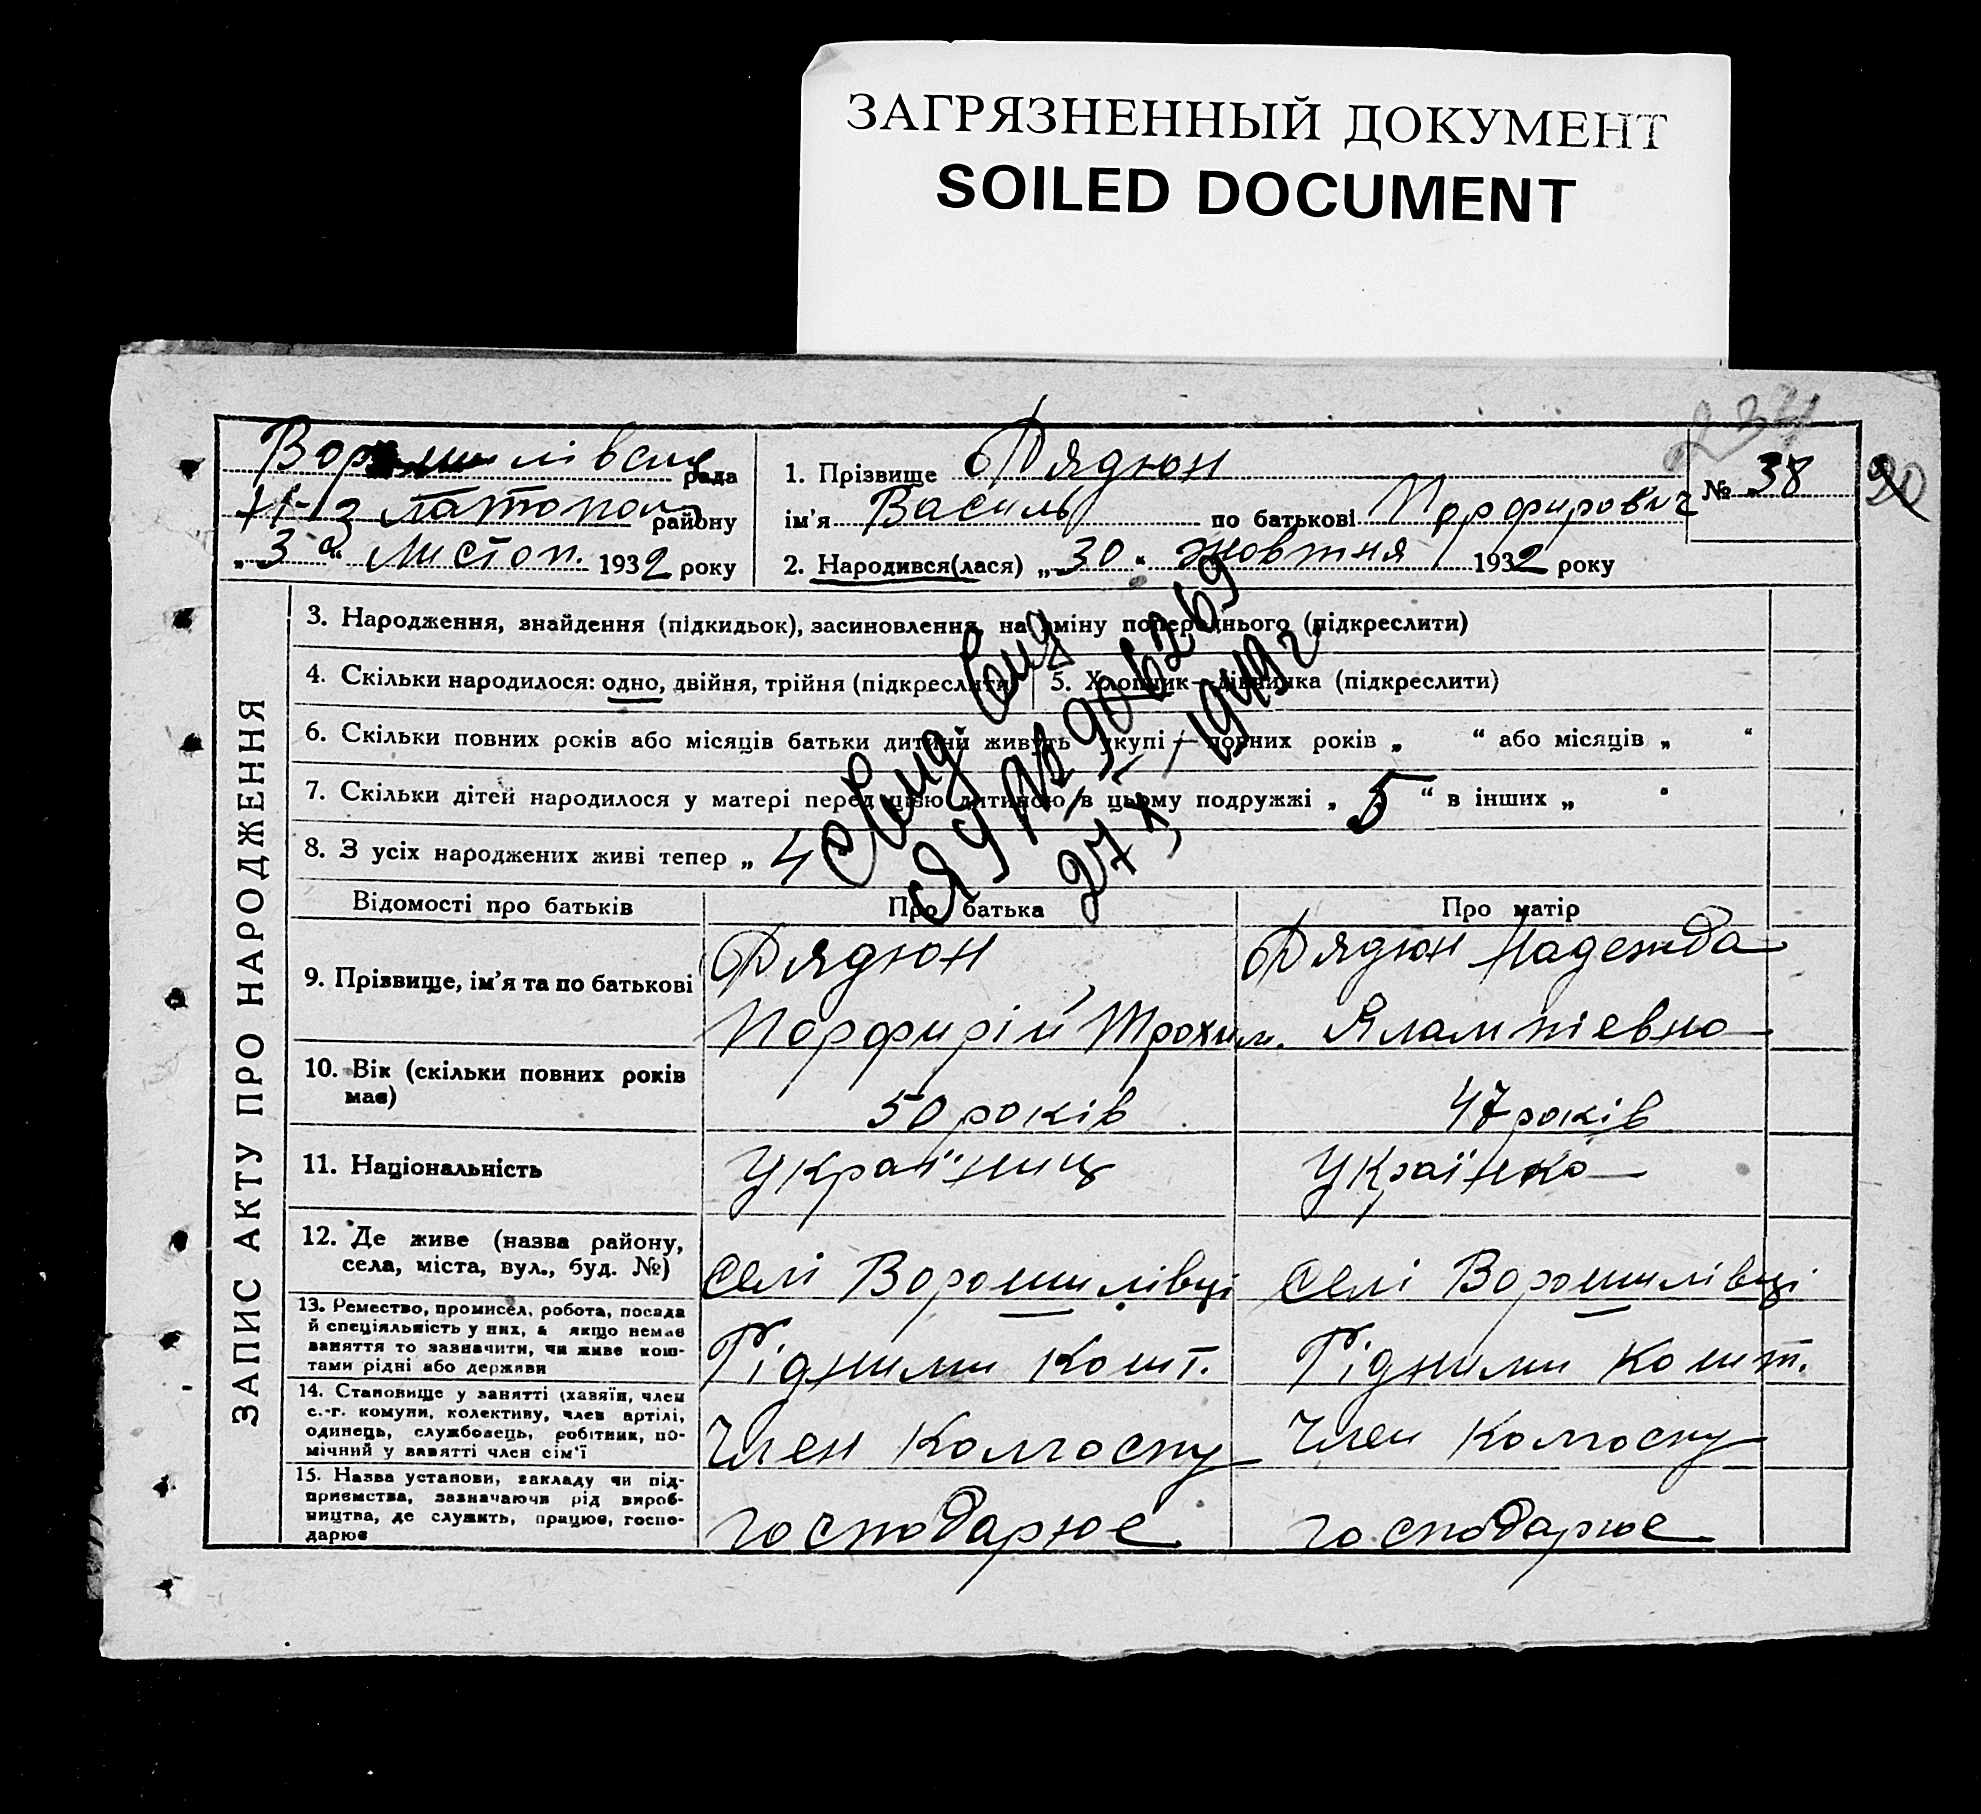 ЗАГРЯЗНЕННЫЙ ДОКУМЕНТ
SOILED DOCUMENT
234
рада
району
„3“ Листоп. 1932 року
1. Прізвище Дядюн
ім'я Василь по батькові Порфирович
2. Народився(лася) „30“ жовтня 1932 року
№ 38
ЗАПИС АКТУ ПРО НАРОДЖЕННЯ
3. Народження, знайдення (підкидьок), засиновлення, на зміну попереднього (підкреслити)
4. Скільки народилося: одно, двійня, трійня (підкреслити)
5. Хлопчик—дівчинка (підкреслити)
6. Скільки повних років або місяців батьки дитини живуть укупі — повних років „ “ або місяців „ “
7. Скільки дітей народилося у матері перед цією дитиною в цьому подружжі „ 5 “ в інших „ “
8. З усіх народжених живі тепер „ 4
27/X 1949 г.
Відомості про батьків
Про батька
Про матір
9. Прізвище, ім'я та по батькові
Дядюн
Порфирій Трохим.
Дядюн Надежда
10. Вік (скільки повних років має)
50 років
47 років
11. Національність
Україниц
Українка
12. Де живе (назва району,
села, міста, вул., буд. №)
Селі Ворошилівці
Селі Ворошилівці
13. Ремество, промисел, робота, посада
й спеціяльність у них, а якщо немає
заняття то зазначити, чи живе кош-
тами рідні або держави
Рідними кошт.
Рідними кошт.
14. Становище у занятті (хазяїн, член
с.-г. комуни, колективу, член артілі,
одинець, службовець, робітник, по-
мічний у занятті член сім'ї
Член Колгоспу
Член Колгоспу
15. Назва установи, закладу чи під-
приємства, зазначаючи рід вироб-
ництва, де служить, працює, госпо-
дарює
господарює
господарює